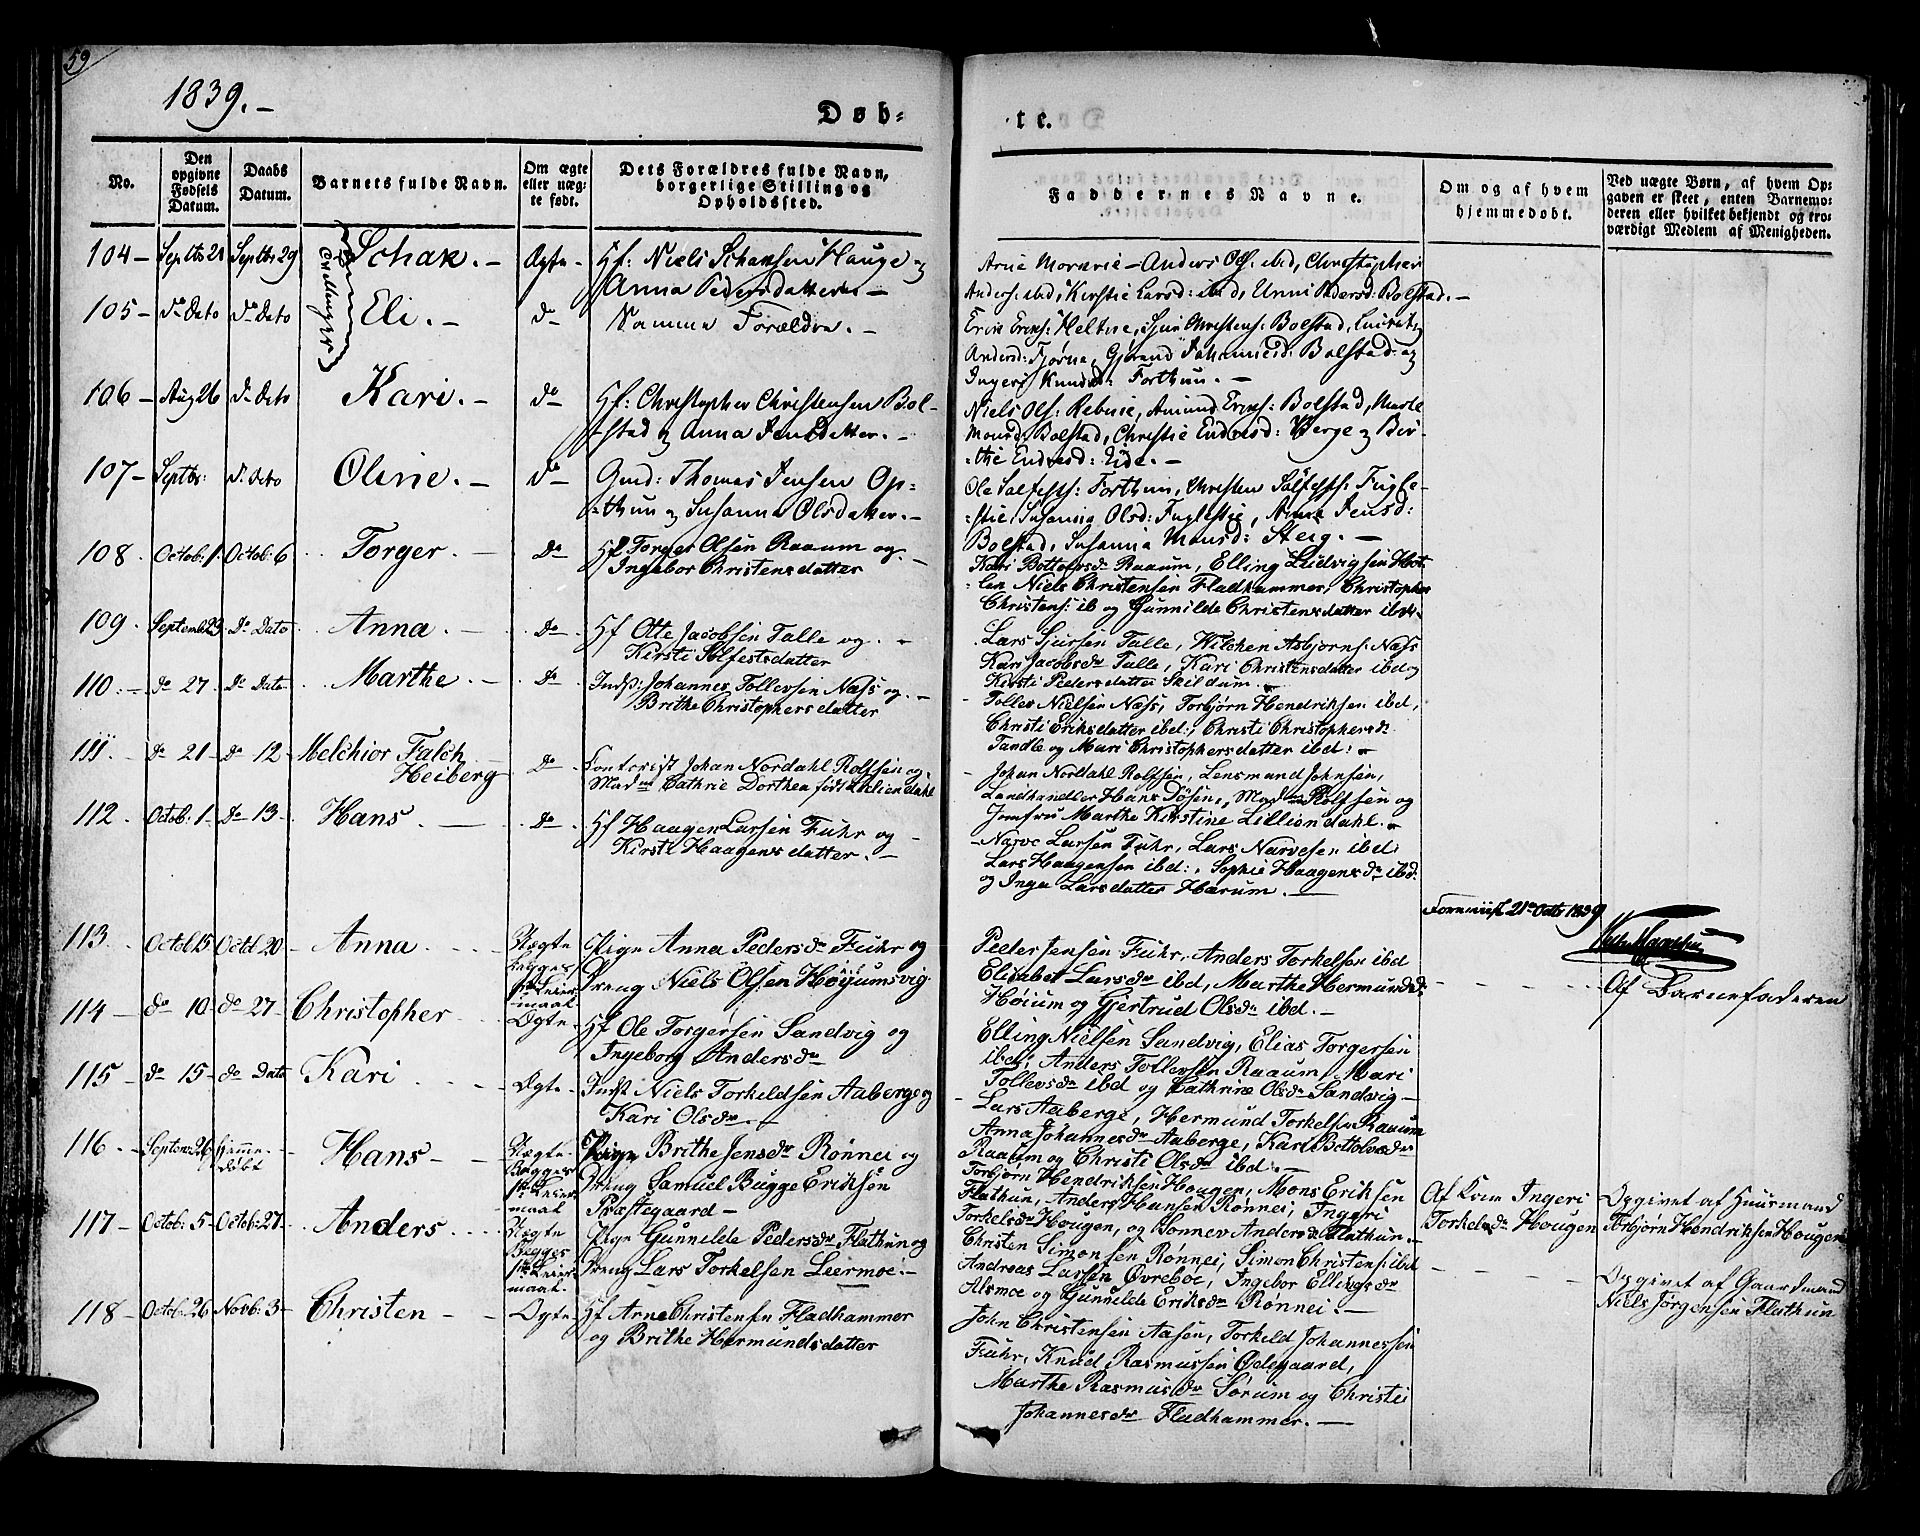 59
1839. –
Døb-
te.
No.
Den opgivne Fødsels Datum.
Daabs Datum.
Barnets fulde Navn.
Om ægte eller uæg-te født.
Dets Forældres fulde Navn, borgerlige Stilling og Opholdssted.
Faddernes Navne.
Om og af hvem hjemmedøbt.
Ved uægte Børn, af hvem Op-gaven er skeet, enten Barnemo-deren eller hvilket bekjendt og tro-værdigt Medlem af Menigheden.
104 – Septbr 29 Schak. – Ægte – Hf: Niels Schaksen Hauge og
Anna Pedersdatter –
Anders Ols: ibd, Christopher
Anders: ibd, Kirstie Larsd: ibd, Unni Pedersd: Bolstad. –
Tvillinger
105 – do dato do dato Eli. – do – Samme Forældre. –
Bolstad,
Andersd: Johannesd: Bolstad og
Ingeri Knudsd: Forthun. –
106 – Aug 26 do dato Kari. – do – Hf: Christopher Christensen Bol-
stad og Anna Jensdatter. –
Niels Ols: Amund Bolstad,
Monsd: Bolstad, Christie Endresd: Berge og Bir-
the Endresd: Eide. –
107 – Septbr: do dato Oline. – do – Gmd: Thomas Jensen Op-
thun og Susanna Olsdatter. –
Ole Forthun, Christen Fugle-
stie, Susanna Olsd: Fuglestie, Jensd:
Bolstad, Susanna Monsd: Steig. –
108. Octob: 1. Octob: 6 Torger. – do – Hf Torger Olsen Raaum og –
Ingebor Christensdatter
Kari Bottolvsdr Raaum, Elling Ludvigsen
Niels Christensen Fladhammer, Christopher
Christens: ib og Gunnilde Christensdatter ibd. –
109. September 29 do Dato Anna. – do – Hf Otte Jacobsen Talle og –
Kirsti Solfestsdatter
Lars Sjursen Talle, Wilchen Asbjørns: Næss
Kari Jacobsdr Talle, Kari Christensdatter ibd og
Kirsti Pedersdatter Skildum.
110. – do 27. do Dato Marthe. – do – Indst: Johannes Tollevsen Næss og –
Brithe Christophersdatter
Tollev Nielsen Næss, Torbjørn Hendriksen ibd,
Christi Eriksdatter ibd:, Christi Christophersdr
Tandle og Mari Christophersdatter ibd: –
111. – do 21 – do 12 – Melchior Falch
Heiberg – do – Contorist Johan Nordahl Rolfsen og
Madme Cathrie Dorthea født Liliendahl
Johan Nordahl Rolfsen, Lensmand Johnsen,
Landhandler Hans Madme Rolfsen og
Jomfru Marthe Kirstine Lilliendahl. –
112. Octob: 1 – do 13 – Hans. – do – Hf Haagen Larsen Fuhr og –
Kirsti Haagensdatter. –
Narve Larsen Fuhr, Lars Narvesen ibd
Lars Haagensen ibd:, Sophie Haagensdr ibd:
og Inga Larsdatter Hærum. –
113. Octob 15 Octob 20 – Anna. Uægte
Begges
1ste Leier-
maal Pige Anna Pedersdr Fuhr og
Dreng Niels Olsen Høyumsvig
Peder Jensen Fuhr, Anders Torkelsen ibd
Elisabet Larsdr ibd, Marthe Hermundsdr
Høium og Gjertrud Olsdr ibd. –
21de Octb 1839
Af Barnefaderen
114 – do 10 – do 27 – Christopher – Ægte – Hf Ole Torgersen Sandvig og
Ingeborg Andersdr
Elling Nielsen Sandvig, Elias Torgersen
ibd:, Anders Tollevsen Raaum, Mari
Tollevsdr ibd og Cathrine Olsdr Sandvig –
115 – do 15 – do Dato Kari Ægte – Indst Niels Torkeldsen Aaberge og
Kari Olsdr –
Lars Aaberge, Hermund Torkelsen Raaum
Anna Johannesdr Aaberge, Kari Bottolvsdr
Raaum og Christi Olsdr ibd. –
116. Septem: 26 Hjemme-
døbt Hans – Uægte
Begges
1ste Leier-
maal Pige Brithe Jensdr Rønnei og
Dreng Samuel Bugge Eriksen
Præstegaard –
Torbjørn Hendriksen Hougen, Mons Eriksen
Flathun, Anders Hansen Rønnei, Ingeri
Torkelsdr Hougen, og Sønnev Andersdr Flathun. –
Af Kone Ingeri
Torkelsdr Hougen
Opgivet af Huusmand
Torbjørn Hendriksen Hougen
117 – Octob: 5 – Octob: 27 – Anders Uægte
Begges
1ste Leier-
maal. Pige Gunnilde Pedersdr Flathun og
Dreng Lars Torkelsen Leermoe. –
Christen Simonsen Rønnei, Simon Christens: ibd
Andreas Larsen Øvreboe, Ingebor Ellingsdr
Alsmoe og Gunnilde Eriksdr Rønnei –
Opgivet af Gaardmand
Niels Jørgensen Flathun
118 – Octob: 26 Novb: 3 – Christen – Ægte Hf Arne Christensen Fladhammer
og Brithe Hermundsdatter
John Christensen Aasen, Torkeld Johannessen
Fuhr, Knud Rasmussen Ødegaard,
Marthe Rasmusdr Sørum og Christie
Johannesdr Fladhammer. –